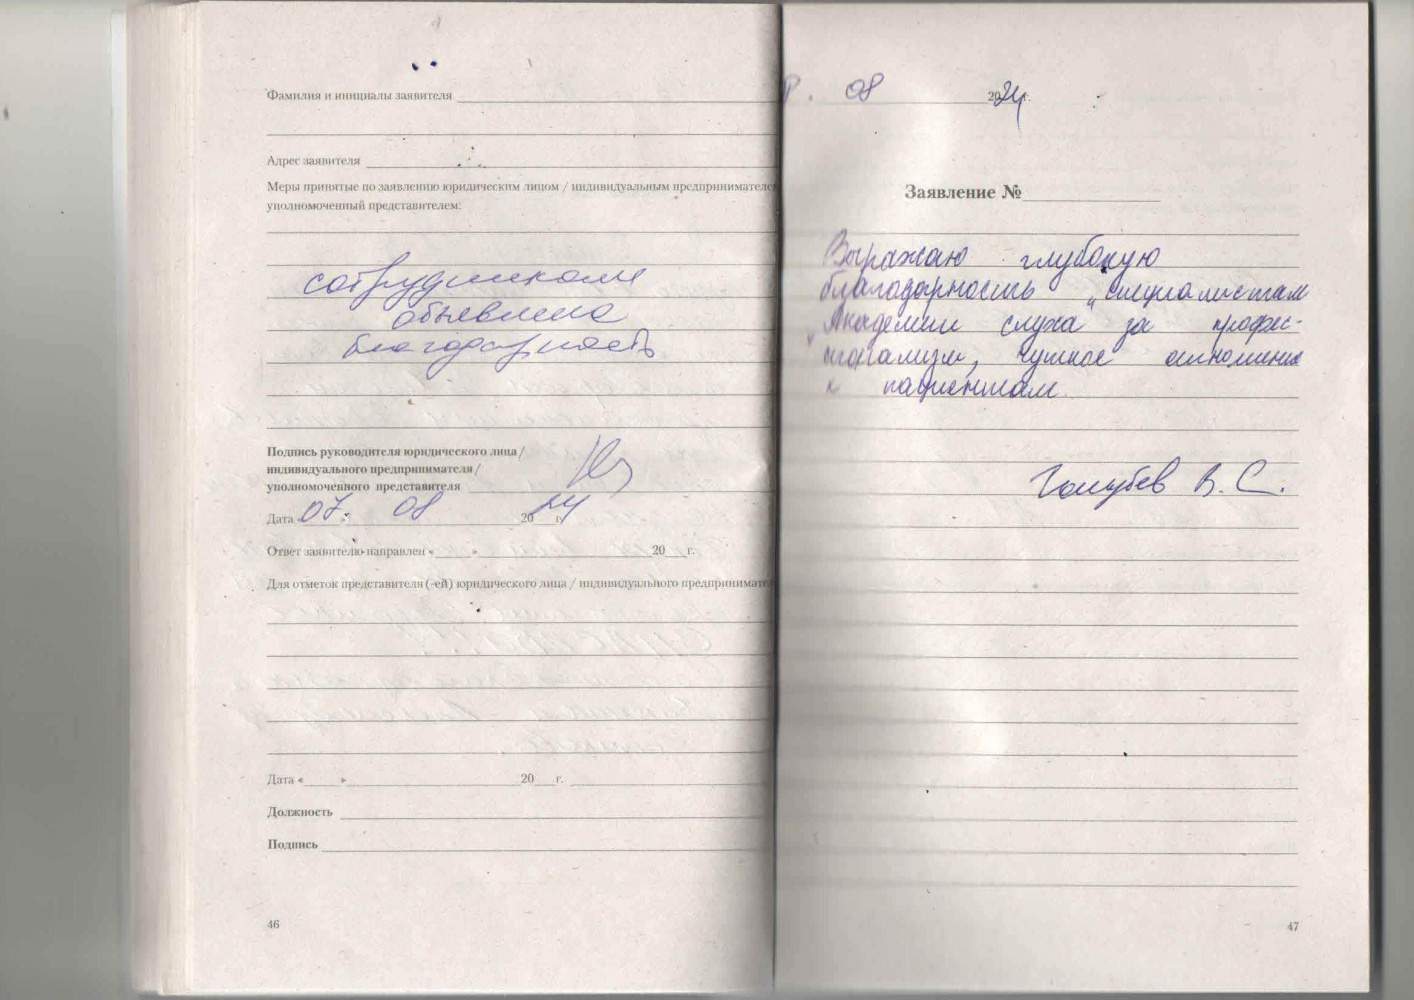 Фамилия и инициалы заявителя
Адрес заявителя
Меры принятые по заявлению юридическим лицом / индивидуальным предпринимателе
уполномоченный представителем:
сотрудникам
объявлена
благодарность
Подпись руководителя юридического лица/
индивидуального предпринимателя/
уполномоченного представителя
Дата « 07 » 08 2024 г.
Ответ заявителю направлен « » 20 г.
Для отметок представителя (-ей) юридического лица / индивидуального предпринимате
Дата « » 20 г.
Должность
Подпись
46
08 2024 г.
Заявление №
Выражаю глубокую
благодарность специалистам
"Академии слуха" за профес-
сионализм, чуткое отношение
к пациентам.
Голубев В. С.
47